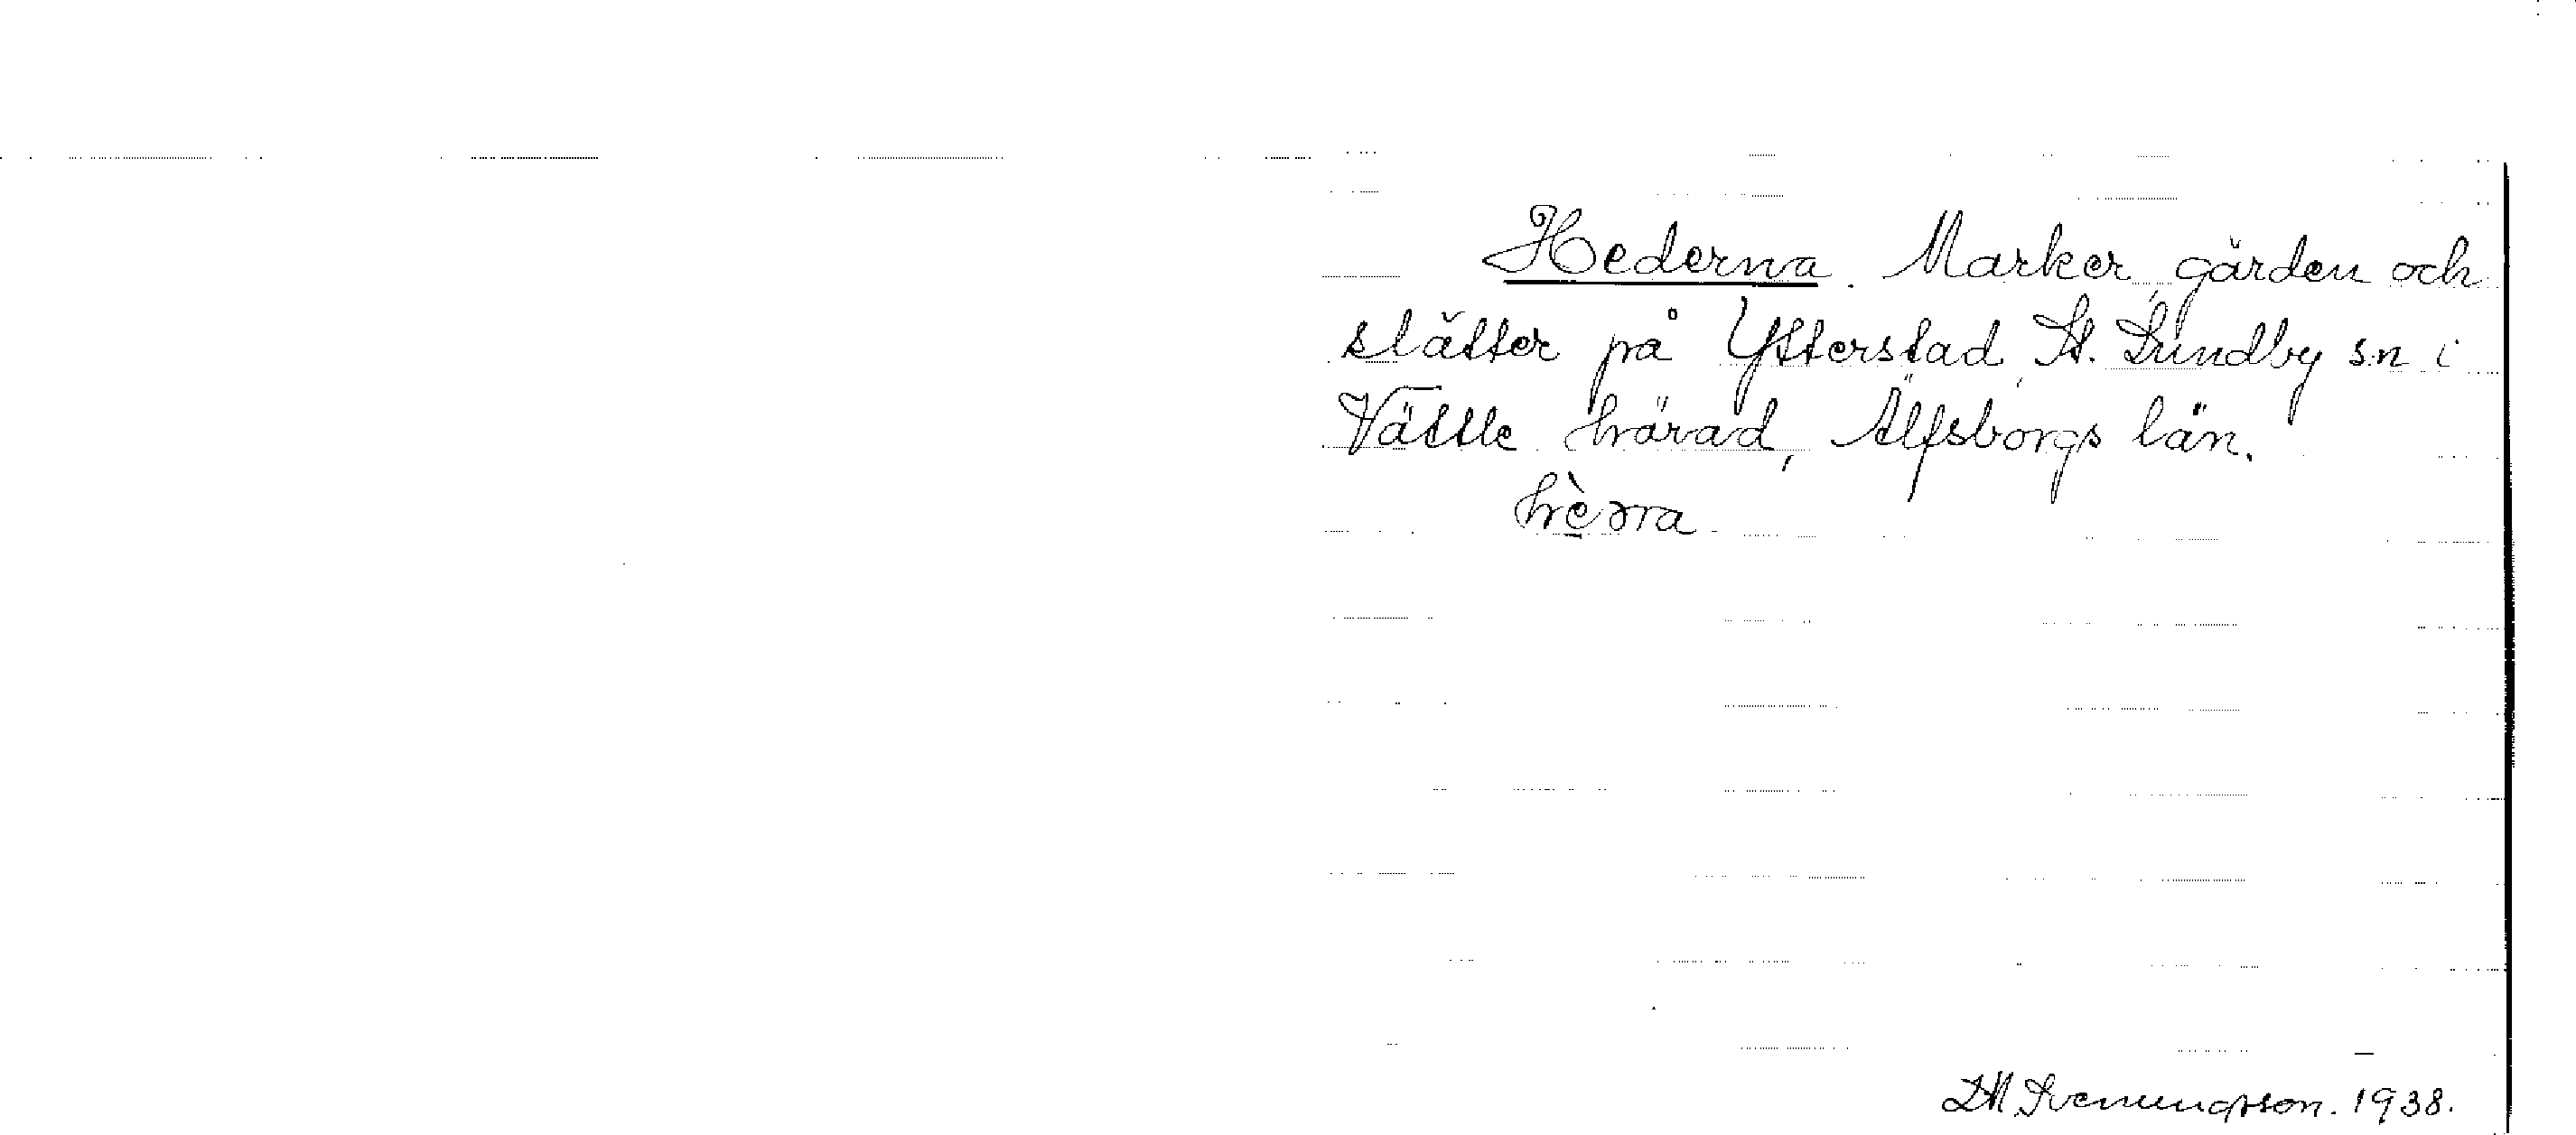 Hederna. Marker, gärden och
slätter på Ytterstad, St. Lundby sn i
Vättle härad, Älfsborgs län.
hè̱ərna
D.M. Svenungsson. 1938.